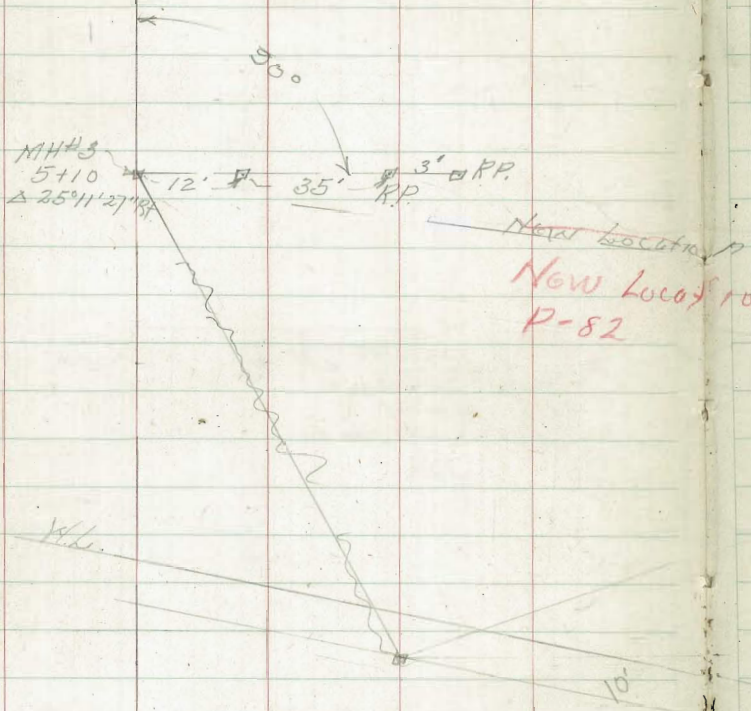 90°
MH#3
5+10
Δ 25°11'27" Rt
12' 35' R.P. 3' R.P.
New Location
New Locatio
P-82
W.L.
10'